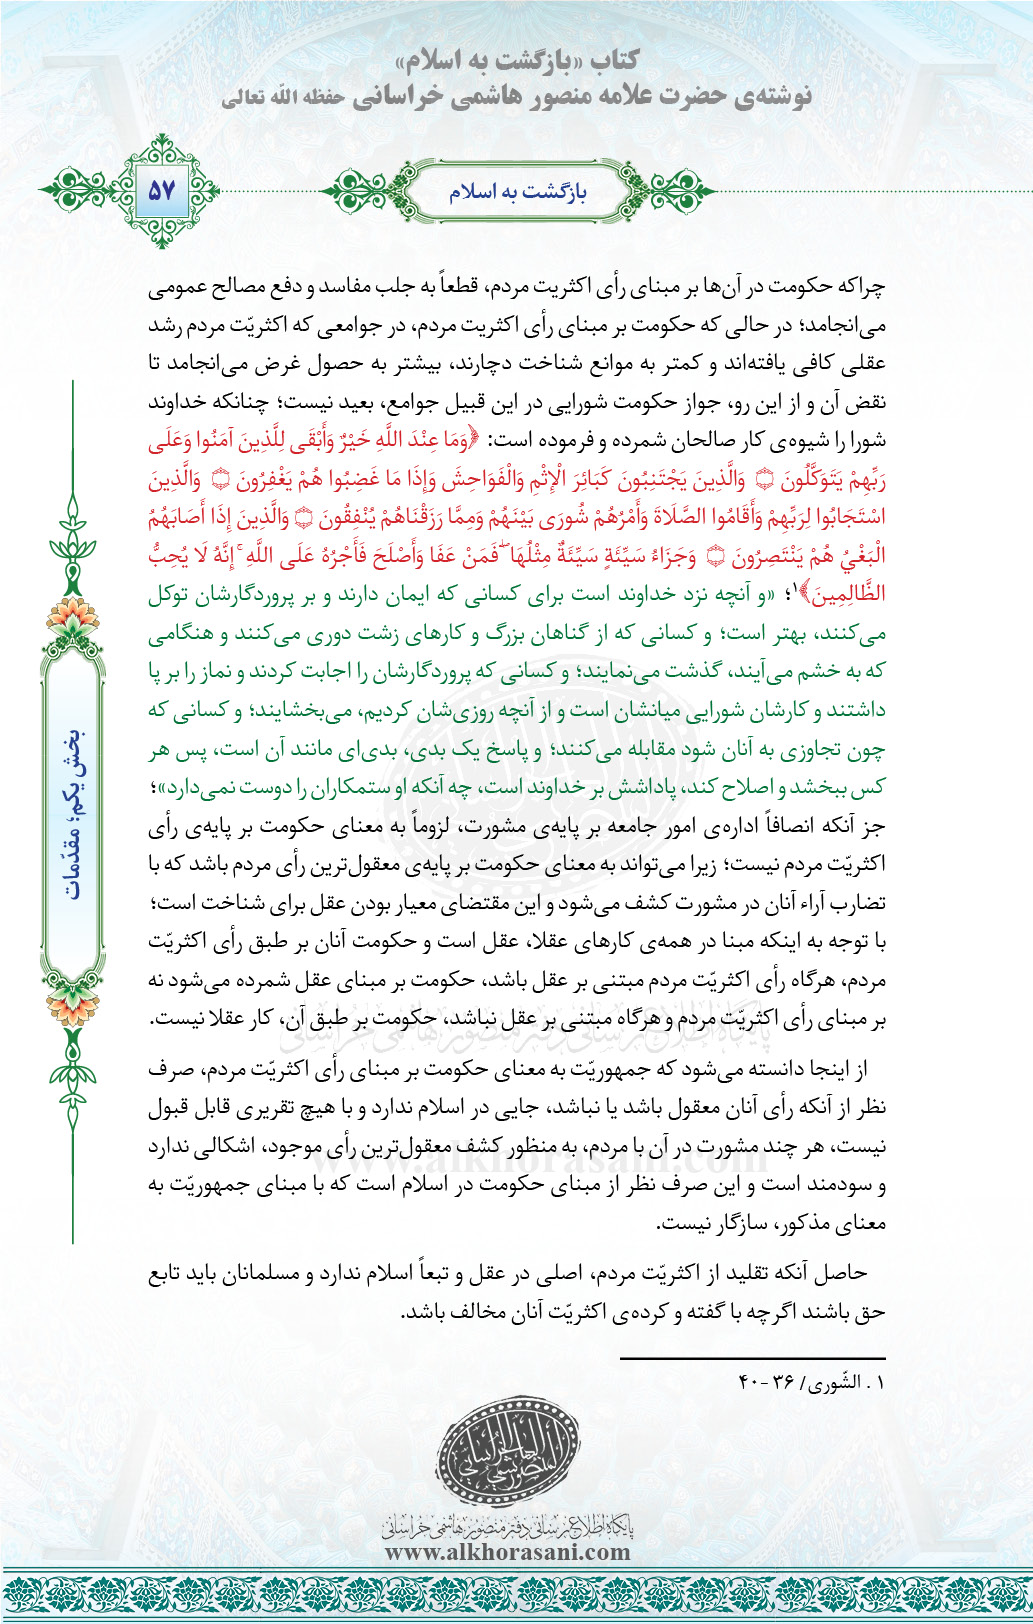 کتاب «بازگشت به اسلام»
نوشته‌ی حضرت علامه منصور هاشمی خراسانی حفظه الله تعالی
۵۷
بازگشت به اسلام
چراکه حکومت در آن‌ها بر مبنای رأی اکثریت مردم، قطعاً به جلب مفاسد و دفع مصالح عمومی
می‌انجامد؛ در حالی که حکومت بر مبنای رأی اکثریت مردم، در جوامعی که اکثریّت مردم رشد
عقلی کافی یافته‌اند و کمتر به موانع شناخت دچارند، بیشتر به حصول غرض می‌انجامد تا
نقض آن و از این رو، جواز حکومت شورایی در این قبیل جوامع، بعید نیست؛ چنانکه خداوند
شورا را شیوه‌ی کار صالحان شمرده و فرموده است: ﴿وَمَا عِنْدَ اللَّهِ خَيْرٌ وَأَبْقَى لِلَّذِينَ آمَنُوا وَعَلَى
رَبِّهِمْ يَتَوَكَّلُونَ ۝ وَالَّذِينَ يَجْتَنِبُونَ كَبَائِرَ الْإِثْمِ وَالْفَوَاحِشَ وَإِذَا مَا غَضِبُوا هُمْ يَغْفِرُونَ ۝ وَالَّذِينَ
اسْتَجَابُوا لِرَبِّهِمْ وَأَقَامُوا الصَّلَاةَ وَأَمْرُهُمْ شُورَى بَيْنَهُمْ وَمِمَّا رَزَقْنَاهُمْ يُنْفِقُونَ ۝ وَالَّذِينَ إِذَا أَصَابَهُمُ
الْبَغْيُ هُمْ يَنْتَصِرُونَ ۝ وَجَزَاءُ سَيِّئَةٍ سَيِّئَةٌ مِثْلُهَا ۖ فَمَنْ عَفَا وَأَصْلَحَ فَأَجْرُهُ عَلَى اللَّهِ ۚ إِنَّهُ لَا يُحِبُّ
الظَّالِمِينَ﴾۱؛ «و آنچه نزد خداوند است برای کسانی که ایمان دارند و بر پروردگارشان توکل
می‌کنند، بهتر است؛ و کسانی که از گناهان بزرگ و کارهای زشت دوری می‌کنند و هنگامی
که به خشم می‌آیند، گذشت می‌نمایند؛ و کسانی که پروردگارشان را اجابت کردند و نماز را بر پا
داشتند و کارشان شورایی میانشان است و از آنچه روزی‌شان کردیم، می‌بخشایند؛ و کسانی که
چون تجاوزی به آنان شود مقابله می‌کنند؛ و پاسخ یک بدی، بدی‌ای مانند آن است، پس هر
کس ببخشد و اصلاح کند، پاداشش بر خداوند است، چه آنکه او ستمکاران را دوست نمی‌دارد»؛
جز آنکه انصافاً اداره‌ی امور جامعه بر پایه‌ی مشورت، لزوماً به معنای حکومت بر پایه‌ی رأی
اکثریّت مردم نیست؛ زیرا می‌تواند به معنای حکومت بر پایه‌ی معقول‌ترین رأی مردم باشد که با
تضارب آراء آنان در مشورت کشف می‌شود و این مقتضای معیار بودن عقل برای شناخت است؛
با توجه به اینکه مبنا در همه‌ی کارهای عقلا، عقل است و حکومت آنان بر طبق رأی اکثریّت
مردم، هرگاه رأی اکثریّت مردم مبتنی بر عقل باشد، حکومت بر مبنای عقل شمرده می‌شود نه
بر مبنای رأی اکثریّت مردم و هرگاه مبتنی بر عقل نباشد، حکومت بر طبق آن، کار عقلا نیست.
از اینجا دانسته می‌شود که جمهوریّت به معنای حکومت بر مبنای رأی اکثریّت مردم، صرف
نظر از آنکه رأی آنان معقول باشد یا نباشد، جایی در اسلام ندارد و با هیچ تقریری قابل قبول
نیست، هر چند مشورت در آن با مردم، به منظور کشف معقول‌ترین رأی موجود، اشکالی ندارد
و سودمند است و این صرف نظر از مبنای حکومت در اسلام است که با مبنای جمهوریّت به
معنای مذکور، سازگار نیست.
حاصل آنکه تقلید از اکثریّت مردم، اصلی در عقل و تبعاً اسلام ندارد و مسلمانان باید تابع
حق باشند اگرچه با گفته و کرده‌ی اکثریّت آنان مخالف باشد.
۱ . الشّوری/ ۳۶ -۴۰
بخش یکم؛ مقدّمات
پایگاه اطلاع‌رسانی دفتر منصور هاشمی خراسانی
www.alkhorasani.com
پایگاه اطلاع‌رسانی دفتر منصور هاشمی خراسانی
www.alkhorasani.com